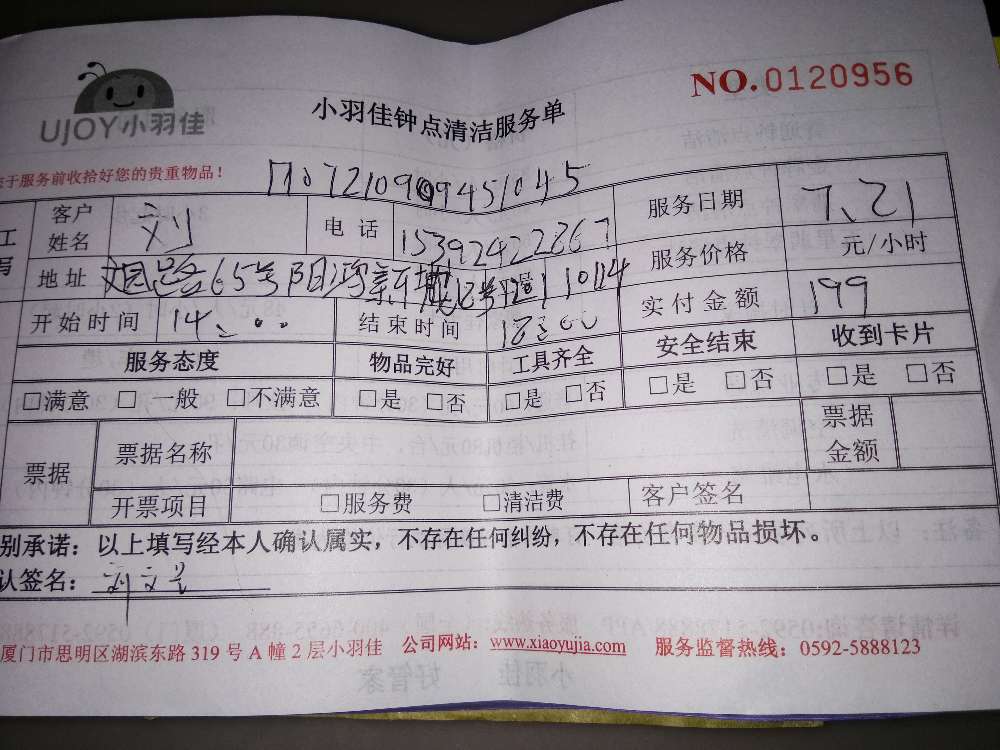 UJOY小羽佳
小羽佳钟点清洁服务单
NO.0120956
于服务前收拾好您的贵重物品！
客户姓名 刘 电话 15392422267 服务日期 7、21
地址 65号阳鸿新城 1014 服务价格 元/小时
开始时间 14:00 结束时间 18:00 实付金额 199
服务态度 物品完好 工具齐全 安全结束 收到卡片
□满意 □一般 □不满意 □是 □否 □是 □否 □是 □否 □是 □否
票据 票据名称 票据金额
开票项目 □服务费 □清洁费 客户签名
别承诺：以上填写经本人确认属实，不存在任何纠纷，不存在任何物品损坏。
认签名：刘文兰
厦门市思明区湖滨东路 319 号 A 幢 2 层小羽佳 公司网站：www.xiaoyujia.com 服务监督热线：0592-5888123